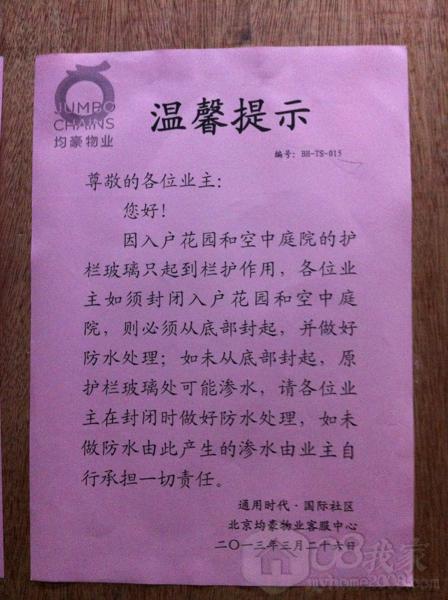 JUMBO
CHAINS
均豪物业
温馨提示
编号：BH-TS-015
尊敬的各位业主：
您好！
因入户花园和空中庭院的护
栏玻璃只起到栏护作用，各位业
主如须封闭入户花园和空中庭
院，则必须从底部封起，并做好
防水处理；如未从底部封起，原
护栏玻璃处可能渗水，请各位业
主在封闭时做好防水处理，如未
做防水由此产生的渗水由业主自
行承担一切责任。
通用时代·国际社区
北京均豪物业客服中心
二〇一三年三月二十六日
08我家
myhome2008.com